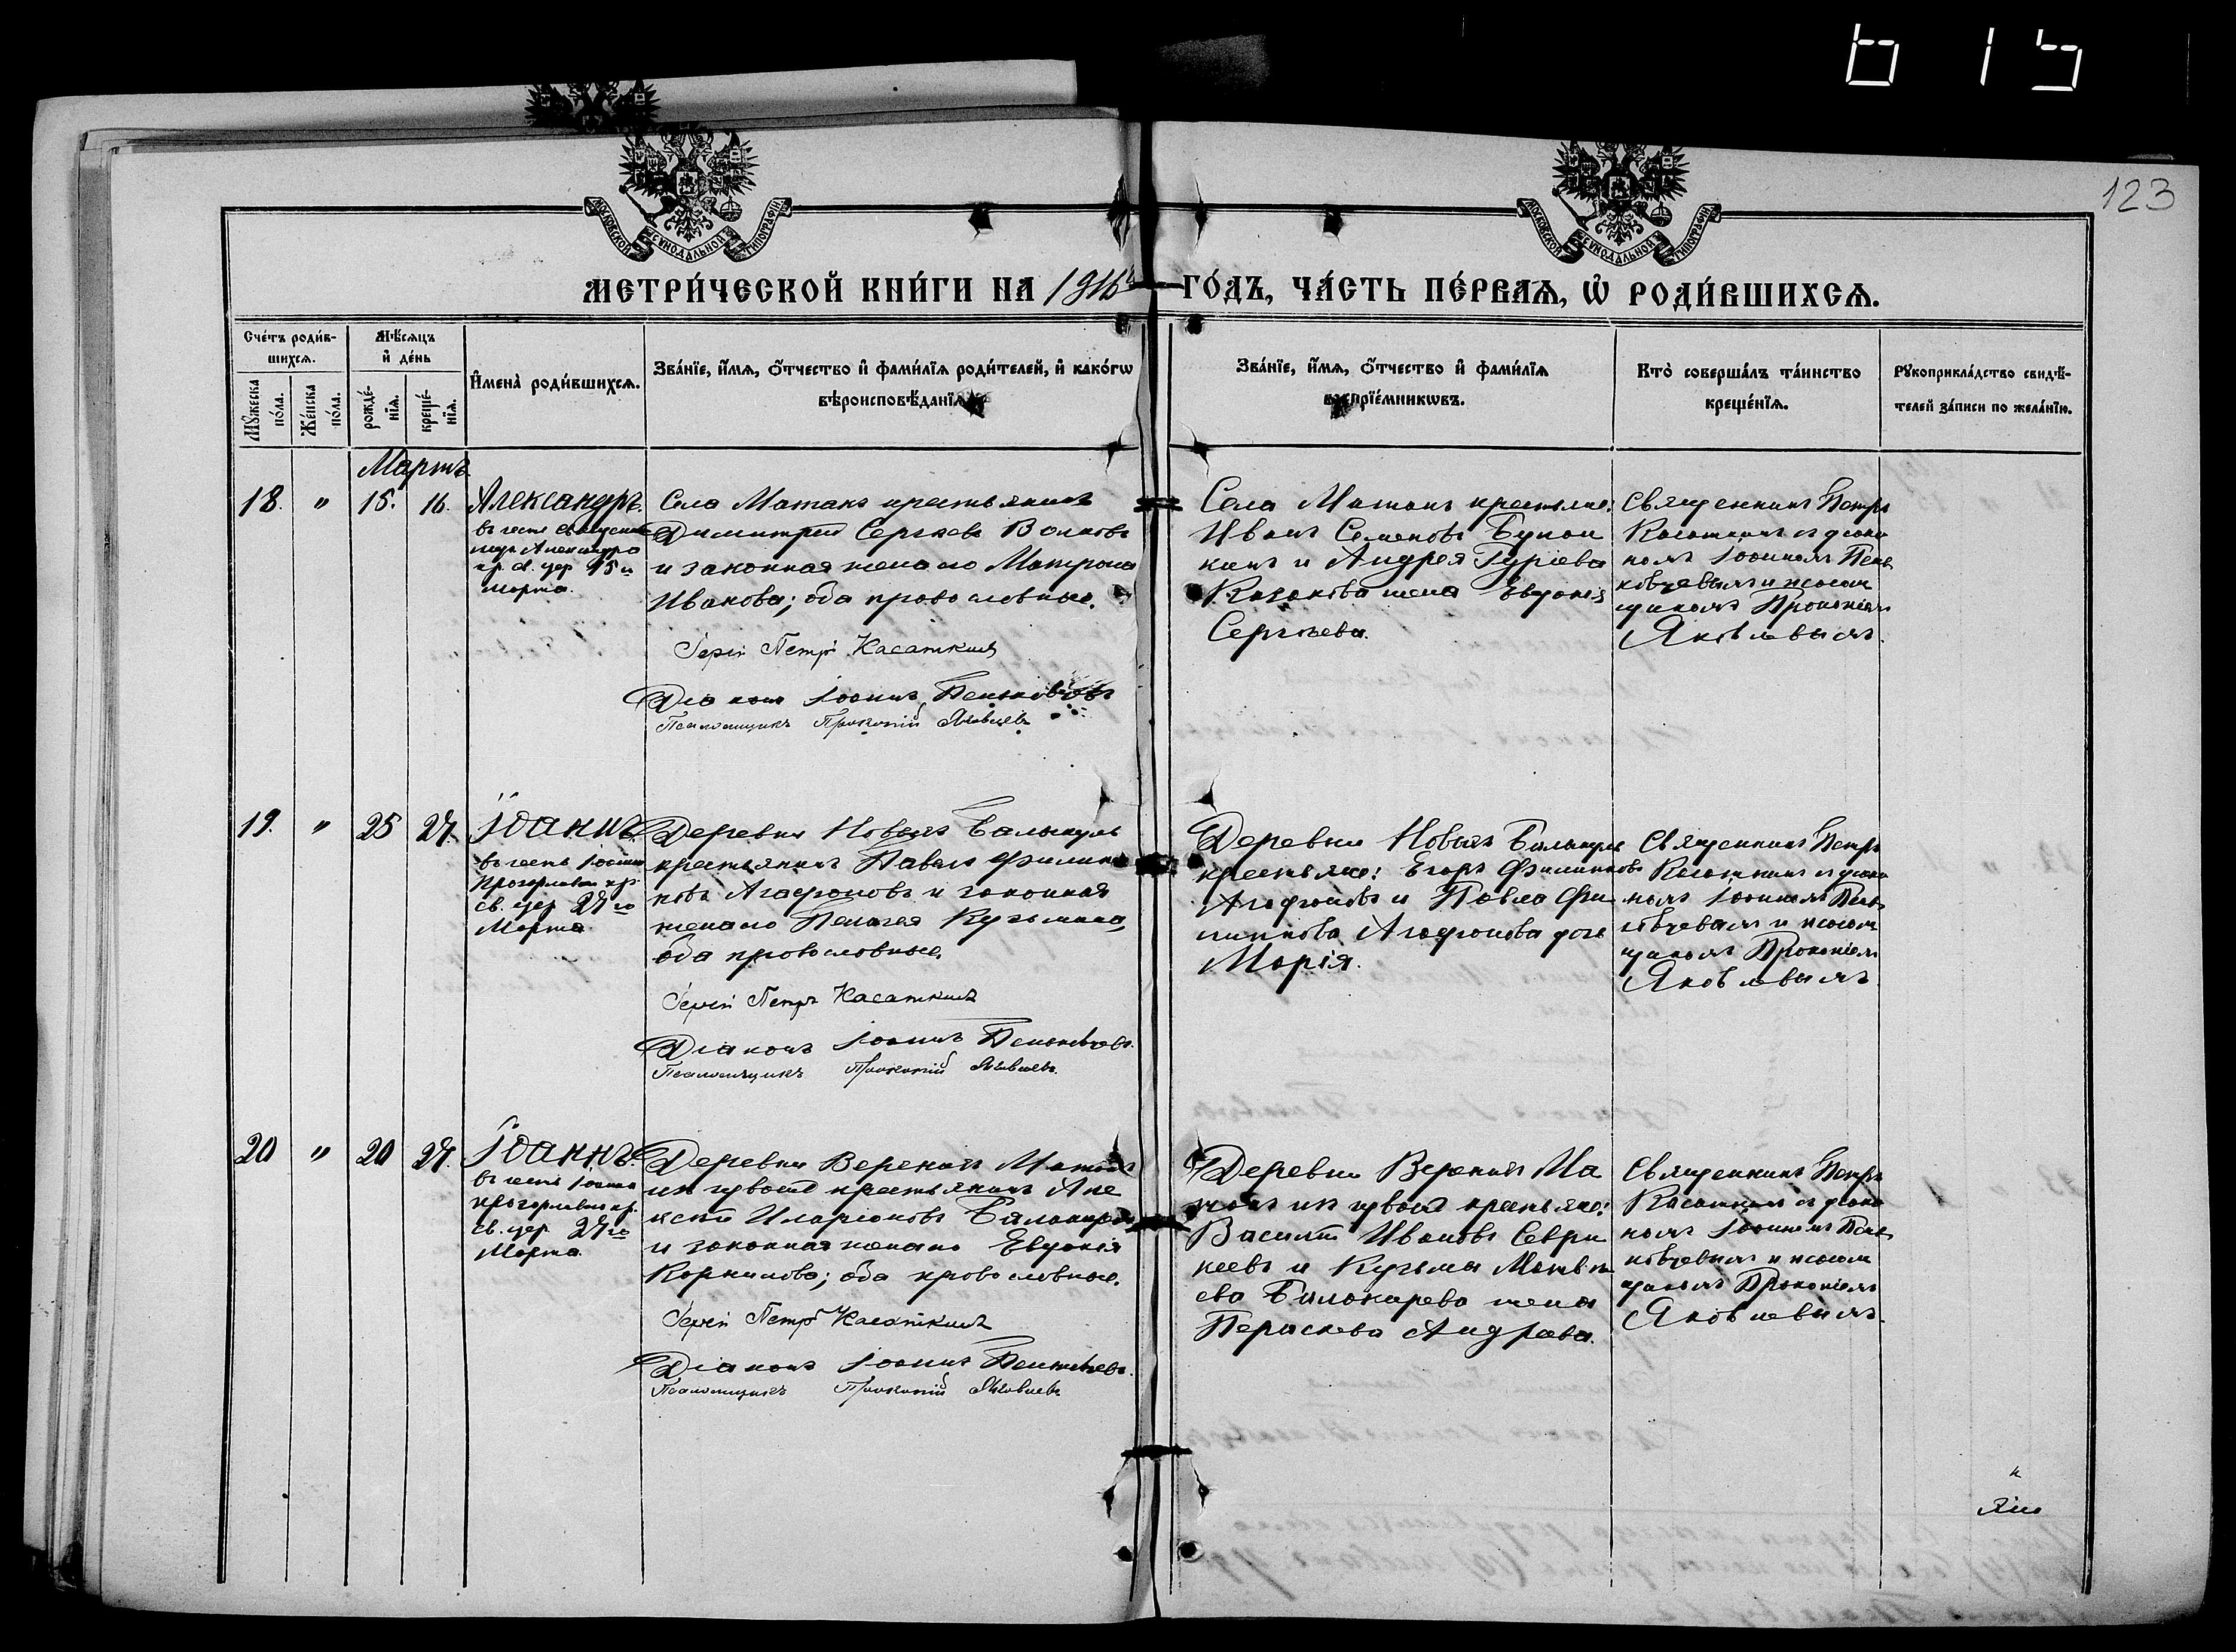 615
123
МОСКОВСКОЙ СѴНОДАЛЬНОЙ ТИПОГРАФІИ
МОСКОВСКОЙ СѴНОДАЛЬНОЙ ТИПОГРАФІИ
МЕТРИ́ЧЕСКОЙ КНИ́ГИ НА 1916й ГО́ДЪ, ЧА́СТЬ ПЕ́РВАѦ, Ѡ҆ РОДИ́ВШИХСѦ.
Сче́тъ роди́в-
шихсѧ.
Мꙋ́жеска по́ла.
Же́нска по́ла.
Мѣ́сѧцъ
и҆ де́нь
рожде́-
нїѧ.
креще́-
нїѧ.
И҆мена̀ роди́вшихсѧ.
Зва́нїе, и҆́мѧ, ѻ҆́тчество и҆ фами́лїѧ роди́телей, и҆ како́гѡ
вѣроисповѣ́данїѧ.
Зва́нїе, и҆́мѧ, ѻ҆́тчество и҆ фами́лїѧ
воспрїе́мникѡвъ.
Кто̀ соверша́лъ та́инство
креще́нїѧ.
Рꙋкоприкла́дство свидѣ́-
телей за́писи по жела́нїю.
Мартъ
18. " 15. 16.
Александръ.
въ честь
Александра
пр. св. цер. 15го
марта.
Села Матакъ крестьянинъ
Димитрий Сергѣевъ Волковъ
и законная жена его Матрона
Иванова; оба православные.
Іерей Петръ Касаткинъ
Діаконъ Іоаннъ Пеньковцевъ
Псаломщикъ Прокопій Яковлевъ
Села Матакъ крестьяне:
Иванъ Семеновъ
и Андрея Гуріева
Казакова жена Евдокія
Сергѣева.
Священникъ Петръ
Касаткинъ съ діако
номъ Іоанномъ Пень
ковцевымъ и псалом
щикомъ Прокопіемъ
Яковлевымъ.
19. " 25 27.
Іоаннъ.
въ честь Іоанна
Прозорливаго пр.
св. цер. 27го
Марта.
Деревни Новыхъ Балыкуль
крестьянинъ Павелъ Филип
повъ Агафоновъ и законная
жена его Пелагея Кузьмина,
оба православные.
Іерей Петръ Касаткинъ
Діаконъ Іоаннъ Пеньковцевъ.
Псаломщикъ Прокопій Яковлевъ.
Деревни Новыхъ Балыкуль
крестьяне: Егоръ Филипповъ
Агафоновъ и Павла Фи
липпова Агафонова дочь
Марія.
Священникъ Петръ
Касаткинъ съ діако
номъ Іоанномъ Пень
ковцевымъ и псалом
щикомъ Прокопіемъ
Яковлевымъ.
20 " 20 27.
Іоаннъ.
въ честь Іоанна
прозорливаго пр.
св. цер. 27го
Марта.
Деревни Верхнихъ Матакъ
крестьянинъ Але
ксѣй Иларіоновъ
и законная жена его Евдокія
Корнилова; оба православные.
Іерей Петръ Касаткинъ
Діаконъ Іоаннъ Пеньковцевъ.
Псаломщикъ Прокопій Яковлевъ
Деревни Верхнихъ Ма
такъ крестьяне:
Василій Ивановъ Севри
кеевъ и Кузьмы Матвѣ
ева жена
Параскева Андреева.
Священникъ Петръ
Касаткинъ съ діако
номъ Іоанномъ Пень
ковцевымъ и псалом
щикомъ Прокопіемъ
Яковлевымъ.